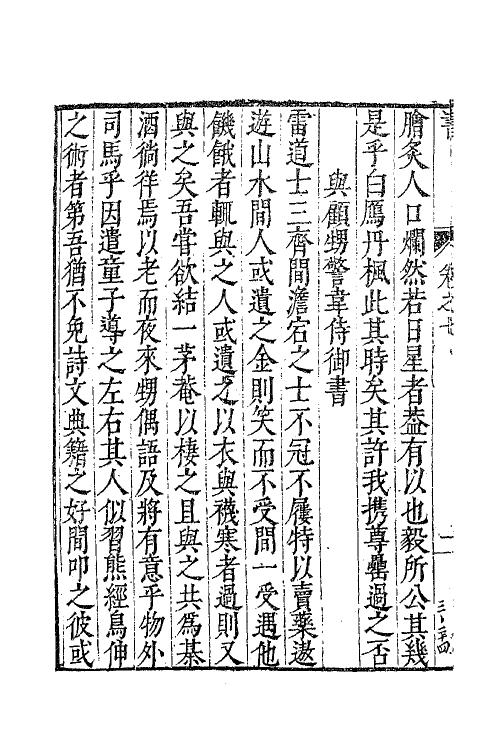 膾炙人口爛然若日星者葢有以也毅所公其幾
是乎白鴈丹楓此其時矣其許我携尊罍過之否
與顧甥警韋侍御書
雷道士三齊間澹宕之士不冠不屨特以賣藥遨
遊山水間人或遺之金則笑而不受間一受遇他
饑餓者輒與之人或遺之以衣與襪寒者過則又
與之矣吾嘗欲結一茅菴以棲之且與之共爲棊
酒徜徉焉以老而夜來甥偶語及將有意乎物外
司馬乎因遣童子導之左右其人似習熊經鳥伸
之術者第吾猶不免詩文典籍之好間叩之彼或